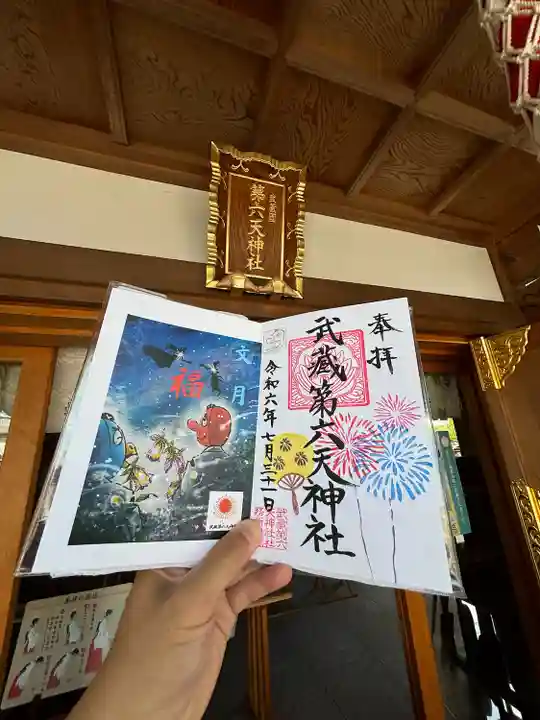 武蔵国
第六天神社
文月
福
奉拝
武蔵第六天神社
令和六年七月三十一日
武蔵第六
天神社社